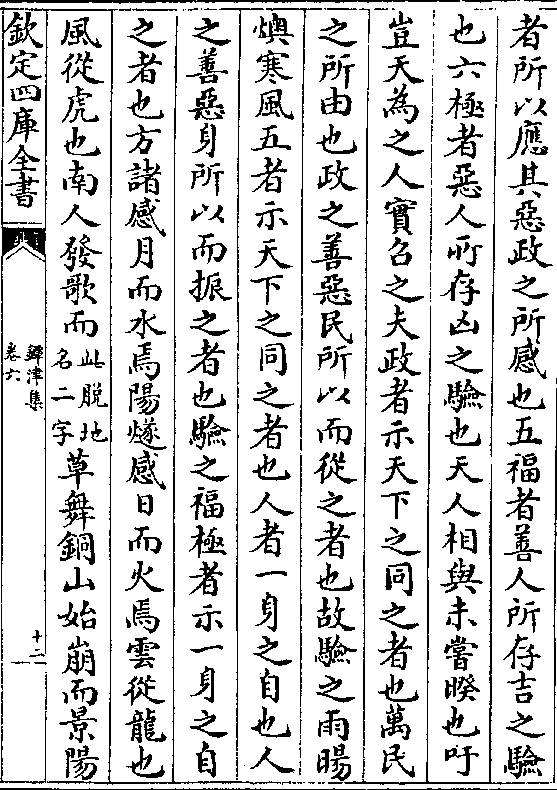 者所以應其惡政之所感也五福者善人所存吉之驗
也六極者惡人所存凶之驗也天人相與未嘗暌也吁
豈天為之人實召之夫政者示天下之同之者也萬民
之所由也政之善惡民所以而從之者也故驗之雨暘
燠寒風五者示天下之同之者也人者一身之自也人
之善惡身所以而振之者也驗之福極者示一身之自
之者也方諸感月而水焉陽燧感日而火焉雲從龍也
風從虎也南人發歌而此脱地名二字草舞銅山始崩而景陽
欽定四庫全書
鐔津集
卷六
十二